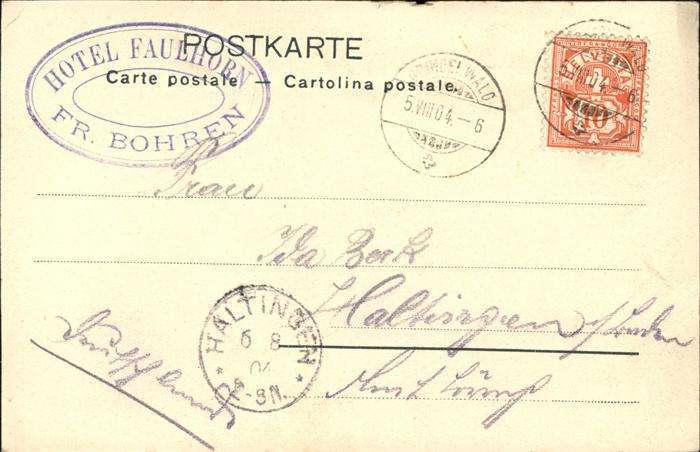 HOTEL FAULHORN
FR. BOHREN
POSTKARTE
Carte postale — Cartolina postale.
5.VIII.04.–6
HELVETIA
10
Frau
Ida Beck
Haltingen
Amt
Deutschland
HALTINGEN
6 8
04